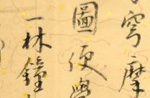 穹摩
圖便與
一林鐘